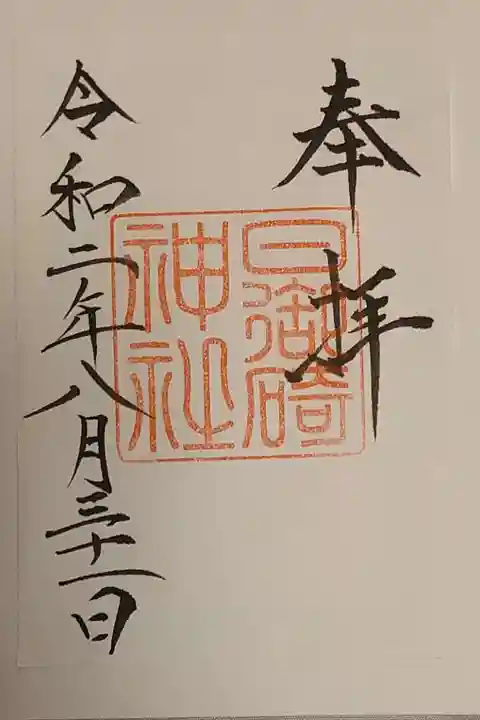 奉拝
日御碕
神社
令和二年八月三十一日